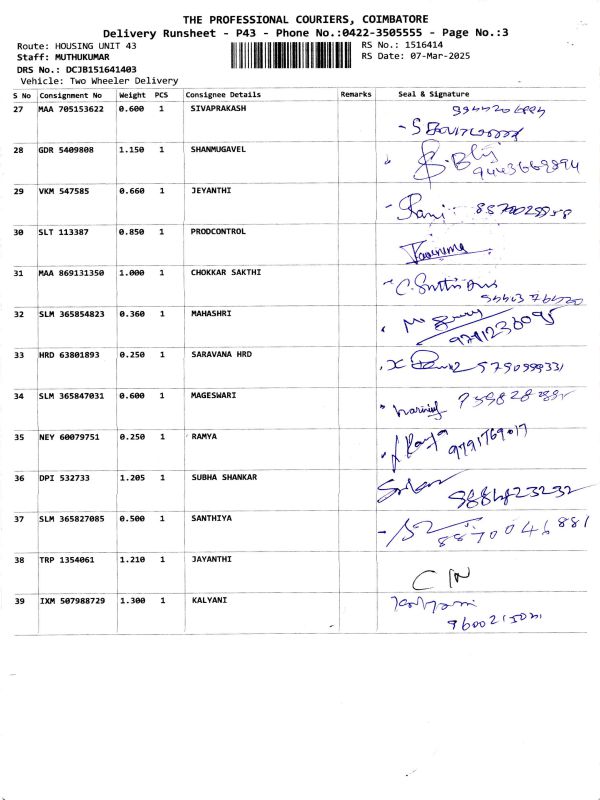 THE PROFESSIONAL COURIERS, COIMBATORE
Delivery Runsheet - P43 - Phone No.:0422-3505555 - Page No.:3
Route: HOUSING UNIT 43
RS No.: 1516414
Staff: MUTHUKUMAR
RS Date: 07-Mar-2025
DRS No.: DCJB151641403
Vehicle: Two Wheeler Delivery
S No Consignment No Weight PCS Consignee Details Remarks Seal & Signature
27 MAA 705153622 0.600 1 SIVAPRAKASH
28 GDR 5409808 1.150 1 SHANMUGAVEL
9443669894
29 VKM 547585 0.660 1 JEYANTHI
Rani
30 SLT 113387 0.850 1 PRODCONTROL
31 MAA 869131350 1.000 1 CHOKKAR SAKTHI
32 SLM 365854823 0.360 1 MAHASHRI
33 HRD 63801893 0.250 1 SARAVANA HRD
34 SLM 365847031 0.600 1 MAGESWARI
35 NEY 60079751 0.250 1 RAMYA
9791769017
36 DPI 532733 1.205 1 SUBHA SHANKAR
37 SLM 365827085 0.500 1 SANTHIYA
8870046881
38 TRP 1354061 1.210 1 JAYANTHI
39 IXM 507988729 1.300 1 KALYANI
Kalyani